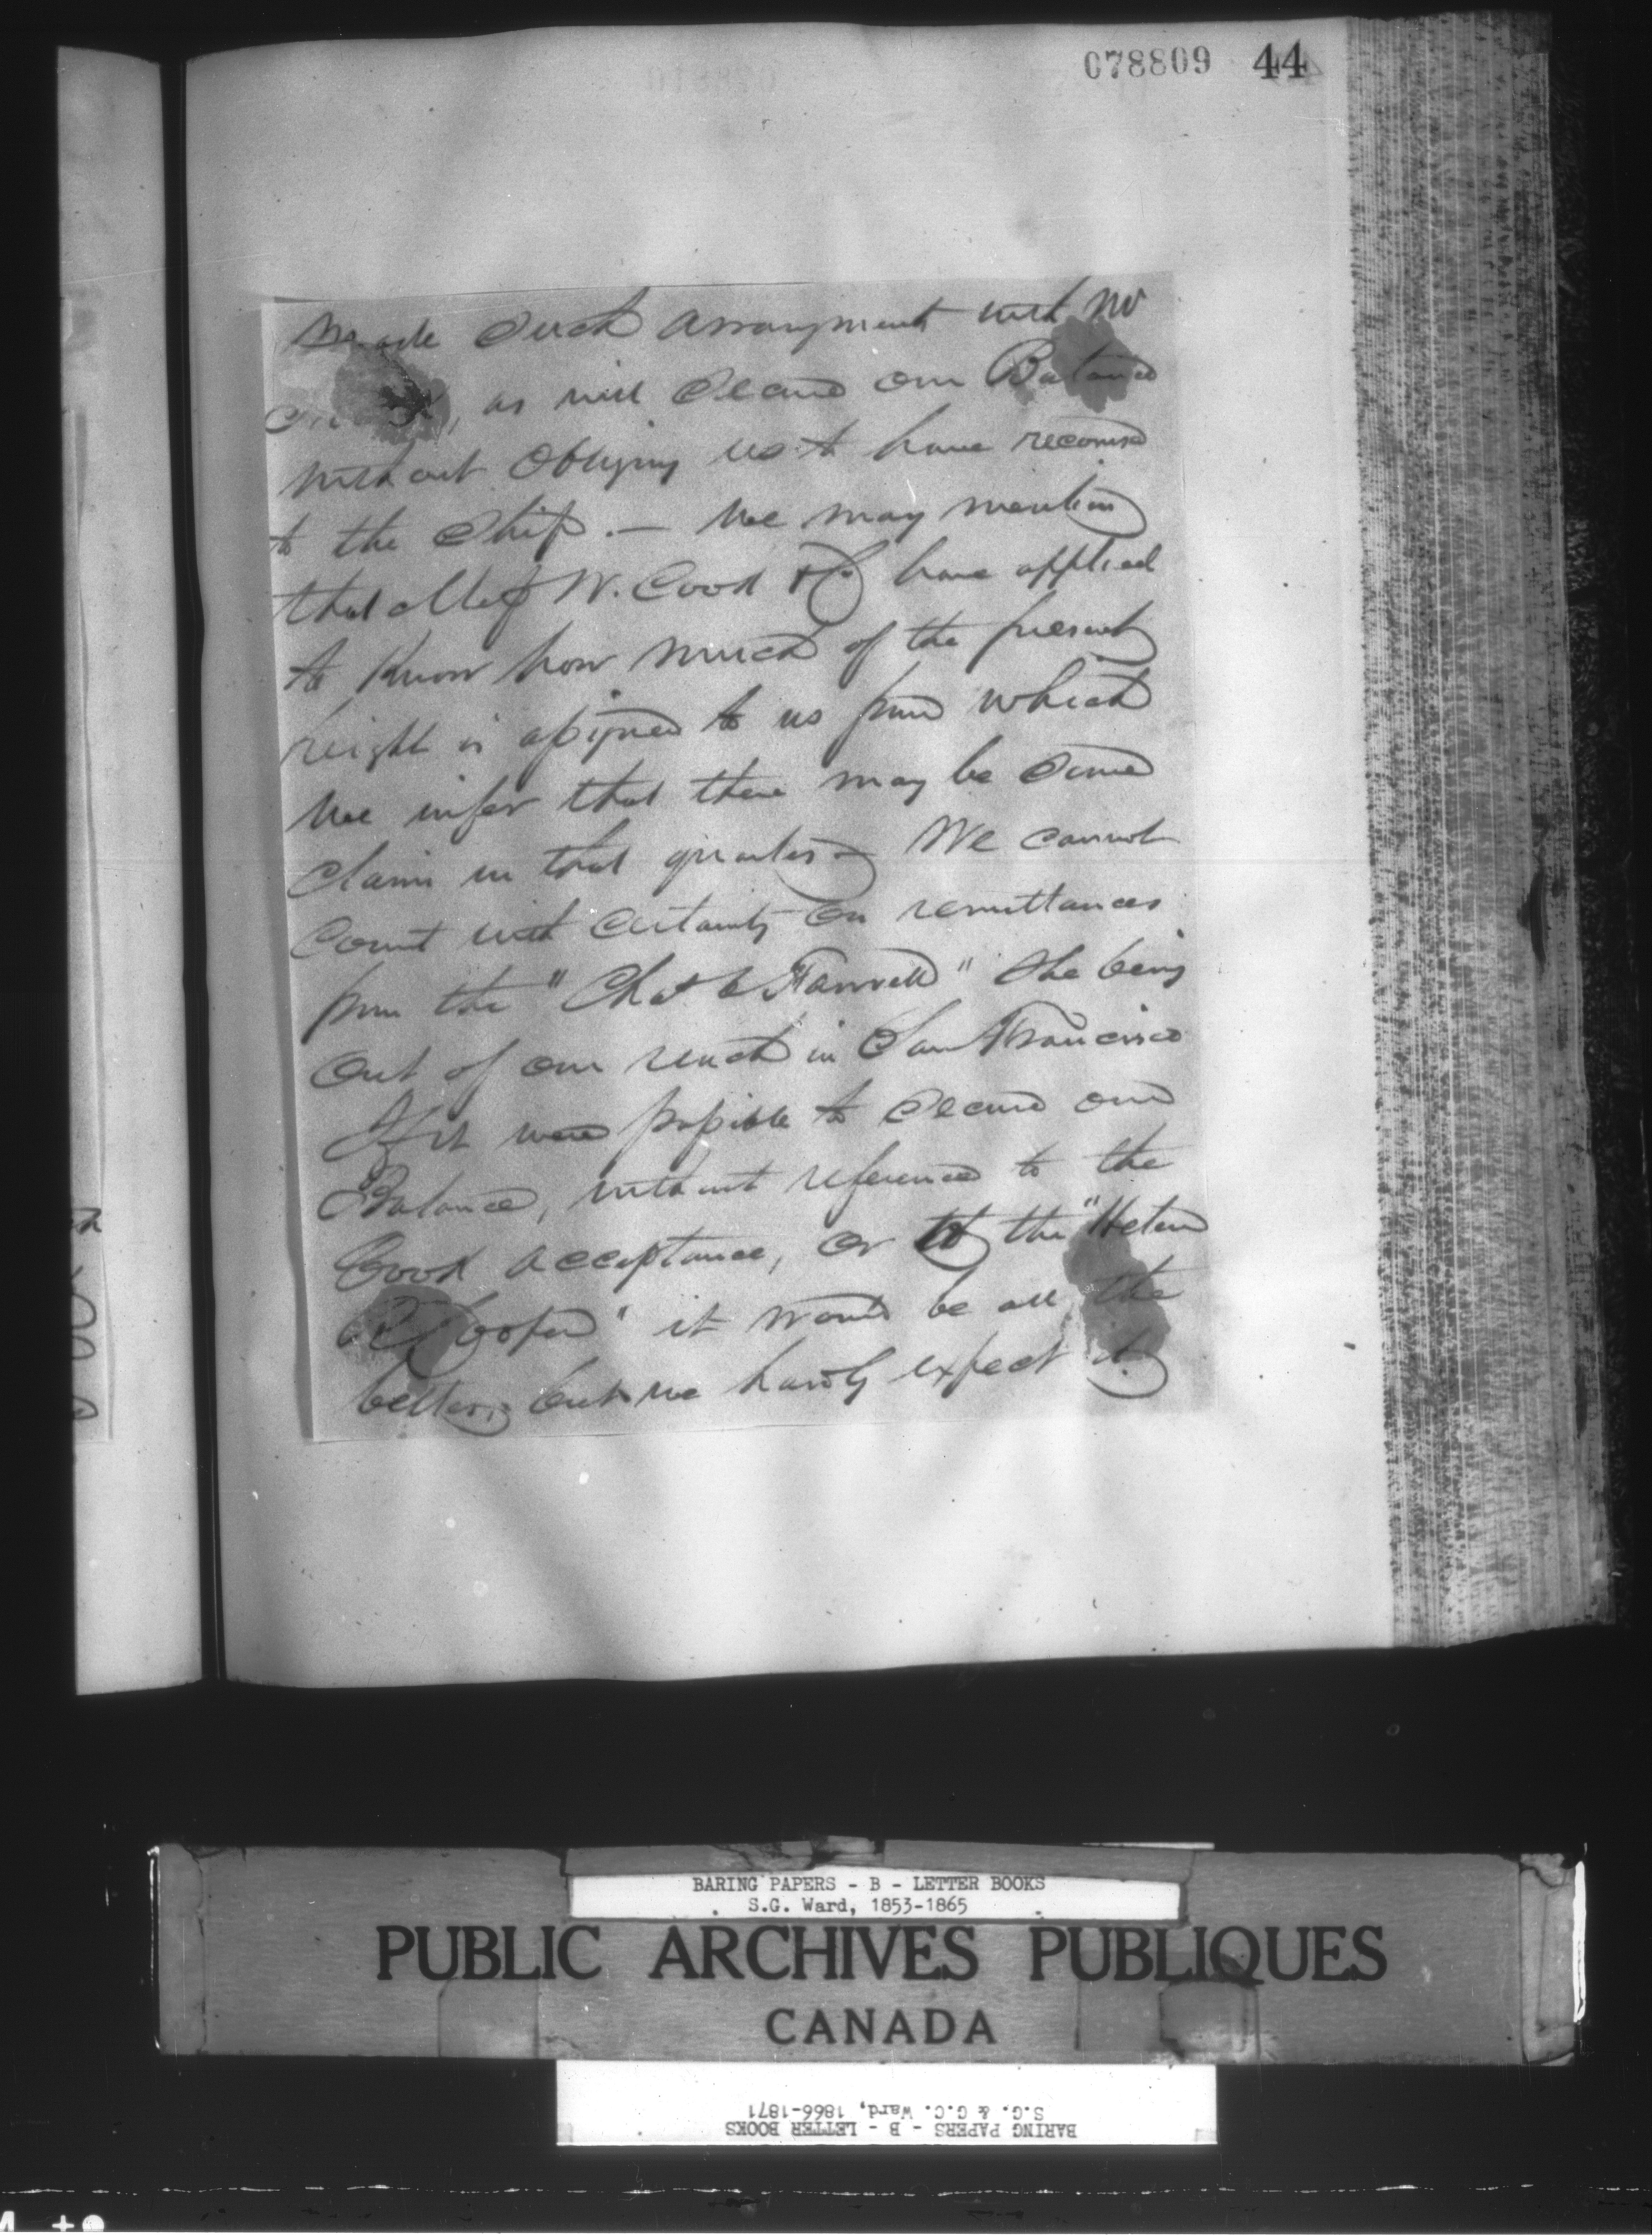 078809 44
made such arrangement with Mr
, as will secure our Balance
without obliging us to have recourse
to the Ship. — We may mention
that Messrs W. Cook & Co have applied
to know how much of the present
freight is assigned to us from which
we infer that there may be some
claim in that quarter — We cannot
count with certainty on remittances
from the "Chas" she being
out of our reach in San Francisco
If it were possible to secure our
Balance, without reference to the
Cook acceptance, or to the "Helen
R Cooper" it would be all the
better, but we hardly expect it.
BARING PAPERS - B - LETTER BOOKS
S.G. Ward, 1853-1865
PUBLIC ARCHIVES PUBLIQUES
CANADA
BARING PAPERS - B - LETTER BOOKS
S.G. & G.C. Ward, 1866-1871